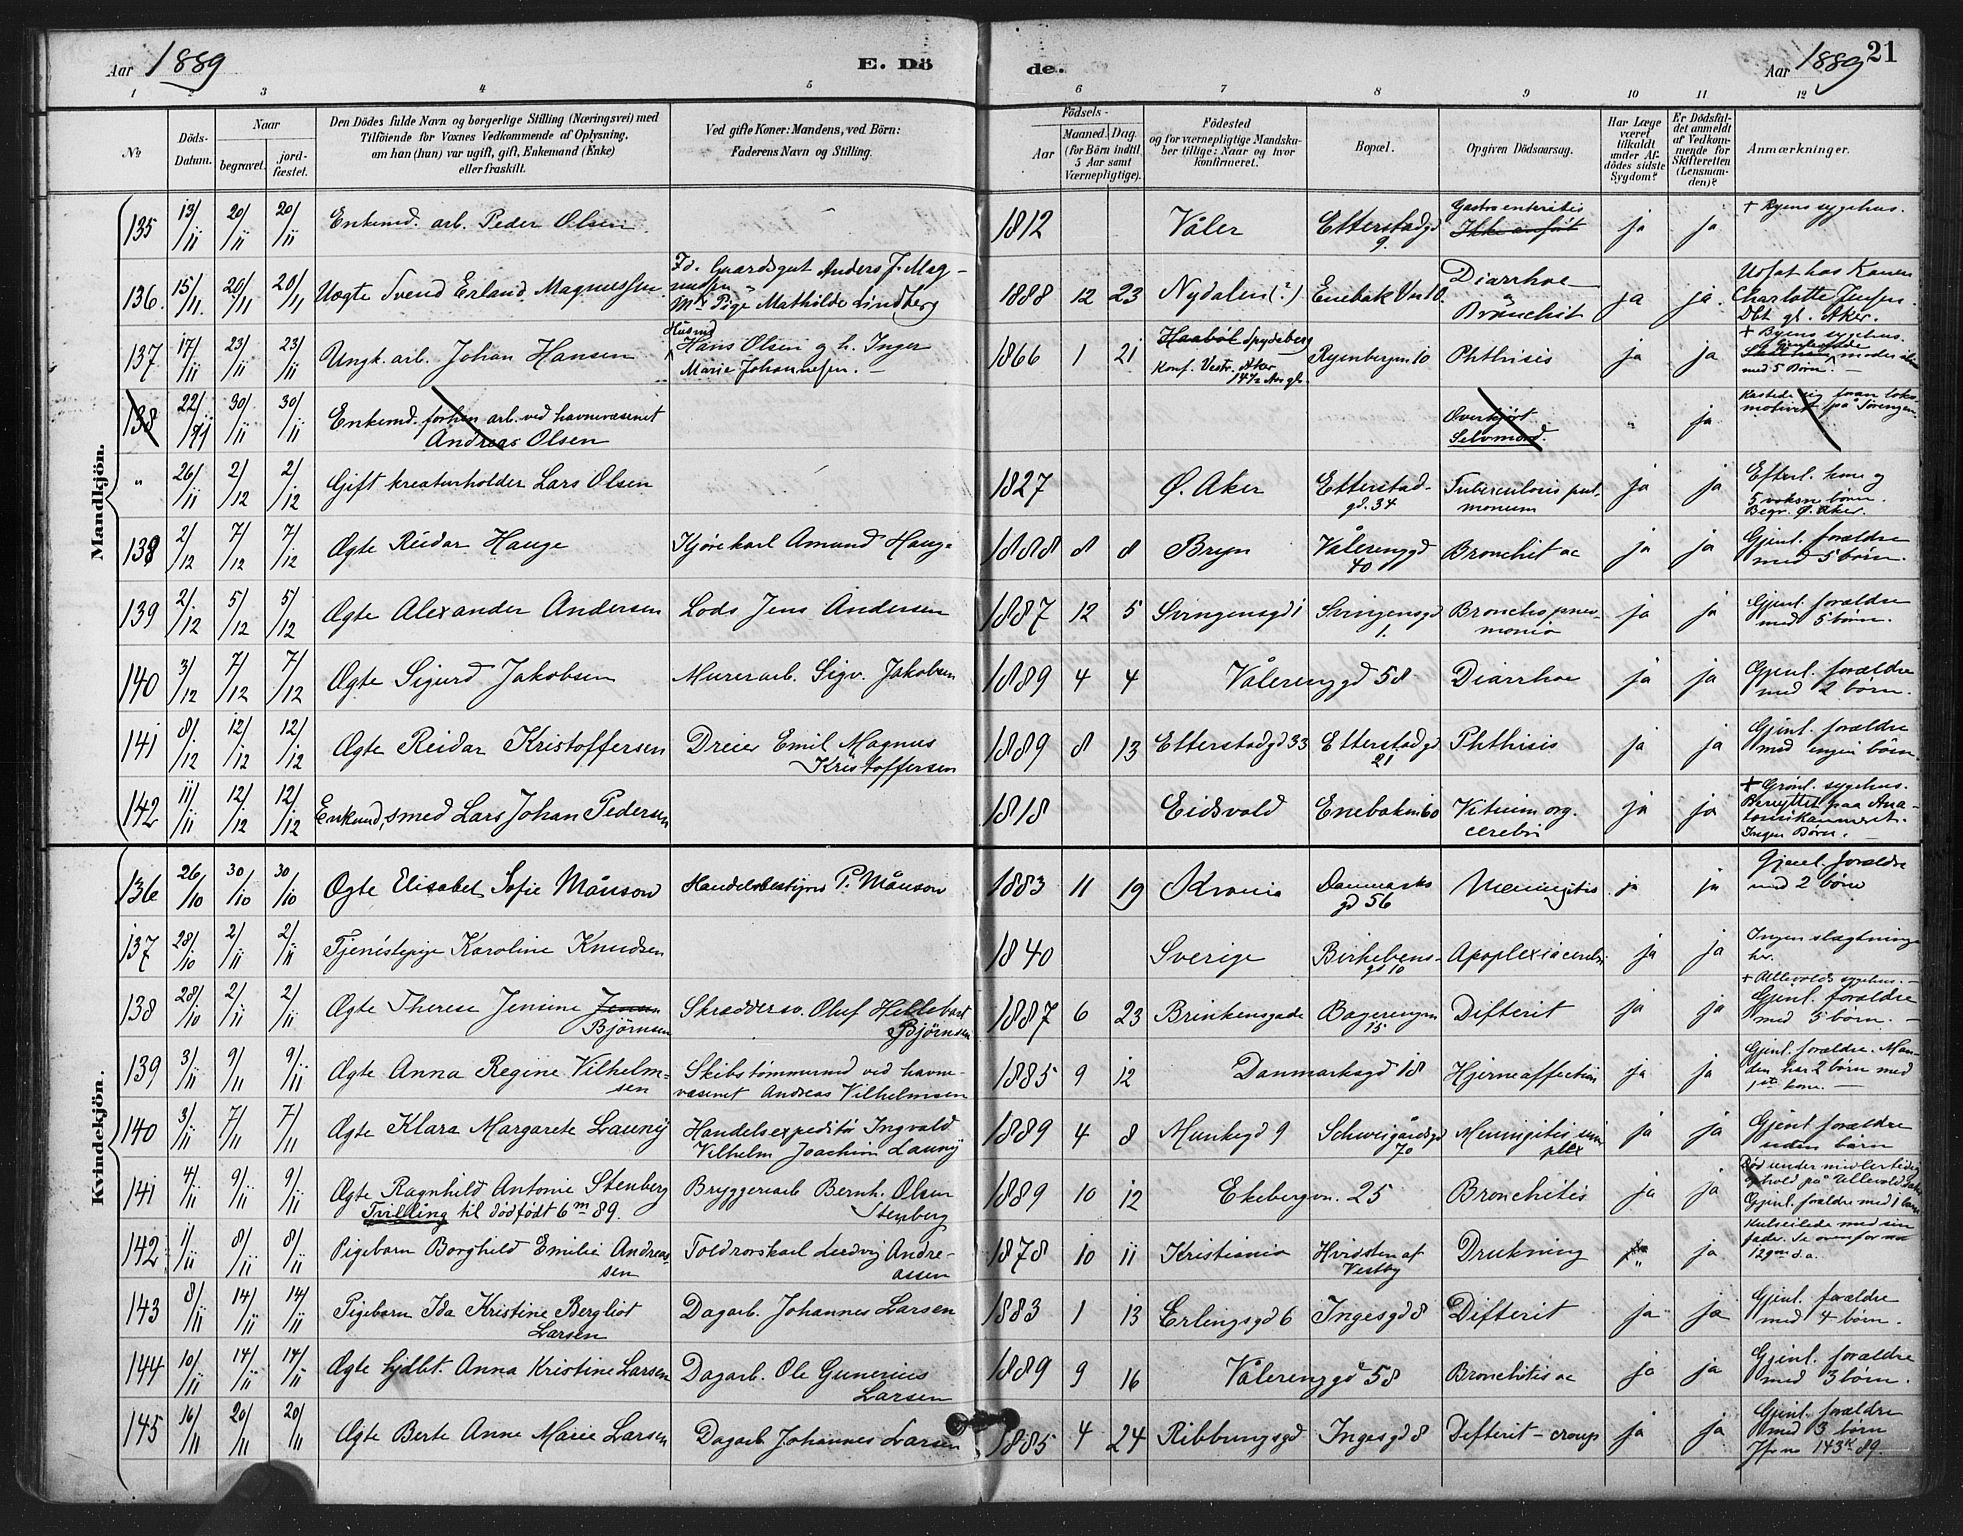 Aar 1889
E. Döde.
Aar 1889
21
1 2 3 4 5 6 7 8 9 10 11 12
No
Döds-Datum.
Naar
begravet.
jordfæstet.
Den Dödes fulde Navn og borgerlige Stilling (Næringsvei) med
Tilföiende for Voxnes Vedkommende af Oplysning,
om han (hun) var ugift, gift, Enkemand (Enke)
eller fraskilt.
Ved gifte Koner: Mandens, ved Börn:
Faderens Navn og Stilling.
Födsels-
Aar
Maaned. Dag.
(for Börn indtil
5 Aar samt
Værnepligtige).
Födested
og for værnepligtige Mandskaber tillige: Naar og hvor
konfirmeret.
Bopæl.
Opgiven Dödsaarsag.
Har Læge
været
tilkaldt
under Afdödes sidste
Sygdom?
Er Dödsfaldet anmeldt
af Vedkommende for
Skifteretten
(Lensmanden)?
Anmærkninger.
Mandkjön.
135 13/11 20/11 20/11 Enkemd. arb. Peder Olsen 1812 Våler Etterstadgd 9. Gastroenteritis Ikke anført ja ja + Byens sygehus.
136. 15/11. 20/11 20/11 Uægte Svend Erland Magnussen Fd. Gaardsgut Anders J. Magnussen Mr Pige Mathilde Lindberg 1888 12 23 Nydalen (?) Enebakvn 10 Diarrhoe & Bronchit ja ja. Udsat hos Konen Charlotte Jensen. Dbt gl. Aker.
137 17/11 23/11 23/11 Ungk. arb. Johan Hansen Husmd Hans Olsen og h. Inger Marie Johannesen. 1866 1 21 Haabøl Spydeberg Konf. Vestr. Aker 14 1/2 Aar gl. Ryenbergvn 10 Phthisis ja ja + Byens sygehus. moder med 5 Børn.
138 22/11 30/11 30/11 Enkemd. forhen arb. ved havnevæsenet Andreas Olsen Overkjørt Selvmord. " ja Kastede sig foran lokomotivet på Sørengen
" 26/11 2/12 2/12 Gift kreaturholder Lars Olsen 1827 Ø. Aker Etterstadgd. 34 Tuberculosis pulmonum ja ja Efterl. kone og 5 voksne børn. Begr. Ø. Aker.
138 2/12 7/12 7/12 Ægte Reidar Hauge Kjørekarl Amund Hauge 1888 8 8 Bryn Vålerenggd 40 Bronchit ac ja ja Gjenl. forældre med 5 børn.
139 2/12 5/12 5/12 Ægte Alexander Andersen Lods Jens Andersen 1887 12 5 Svingensgd 1 Svingensgd 1. Bronchopneumonia ja ja Gjenl. forældre med 5 børn.
140 3/12 7/12 7/12 Ægte Sigurd Jakobsen Murerarb. Sigv. Jakobsen 1889 4 4 Vålerenggd 58 Diarrhoe ja ja Gjenl. forældre med 2 børn.
141 8/12 12/12 12/12 Ægte Reidar Kristoffersen Dreier Emil Magnus Kristoffersen 1889 8 13 Etterstadgd 33 Etterstadgd 21 Phthisis ja ja Gjenl. forældre med ingen børn.
142 11/11 12/12 12/12 Enkemd, smed Lars Johan Pedersen 1818 Eidsvold Enebakvn 60 Vitium org. cerebri ja ja + Grønl. sygehus. Benyttet paa Anatomikammeret. Ingen Børn.
Kvindekjön.
136 26/10 30/10 30/10 Ægte Elisabet Sofie Månson Handelsbestyrer P. Månson 1883 11 19 Krania Danmarksgd 56 Meningitis ja ja Gjenl. forældre med 2 børn
137 28/10 2/11 2/11 Tjenestepige Karoline Knudsen 1840 Sverige Birkebensgd 10 Apoplexia cerebri ja ja Ingen slægtninge her.
138 28/10 2/11 2/11 Ægte Therese Jensine Jensen Bjørnsen Skrædersv. Oluf Hellebart Bjørnsen 1887 6 23 Brinkensgade Bagerengen 15 Difterit ja ja + Ullevolds sygehus. Gjenl. forældre med 5 børn.
139 3/11 9/11 9/11 Ægte Anna Regine Vilhelmsen Skibstømmermd ved havnevæsenet Andreas Vilhelmsen 1885 9 12 Danmarksgd 18 Hjerneaffection ja ja Gjenl. forældre. Manden har 2 børn med 1ste kone.
140 3/11 7/11 7/11 Ægte Klara Margarete Launy Handelsexpeditør Ingvald Vilhelm Joachim Launy 1889 4 8 Munkegd 9 Schweigårdsgd 70 Meningitis simplex ja ja Gjenl. forældre uden børn
141 4/11 9/11 9/11 Ægte Ragnhild Antonie Stenberg Tvilling til dødfødt 6 m 89. Bryggeriarb Bernh. Olsen Stenberg 1889 10 12 Ekebergvn. 25 Bronchitis ja ja Død under midlertidig ophold på Ullevoldsveien Gjenl. forældre med 1 barn
142 1/11 8/11 8/11 Pigebarn Borghild Emilie Andreassen Toldrorskarl Ludvig Andreassen 1878 10 11 Kristiania Hvidsten af Vestby Drukning " ja Kulseilede med sin fader. Se ovenfor no 129 m. d. a.
143 8/11 14/11 14/11 Pigebarn Ida Kristine Bergliot Larsen Dagarb. Johannes Larsen 1883 1 13 Erlingsgd 6 Ingesgd 8 Difterit ja ja Gjenl. forældre med 4 børn.
144 10/11 14/11 14/11 Ægte hjdbt. Anna Kristine Larsen Dagarb. Ole Gunerius Larsen 1889 9 16 Vålerenggd 58 Bronchitis ac ja ja Gjenl. forældre med 3 børn.
145 16/11 20/11 20/11 Ægte Berte Anne Marie Larsen Dagarb Johannes Larsen 1885 4 24 Ribbungsgd Ingesgd 8 Difterit - croup ja ja Gjenl. forældre med 3 børn Jfr no 143 K 89.